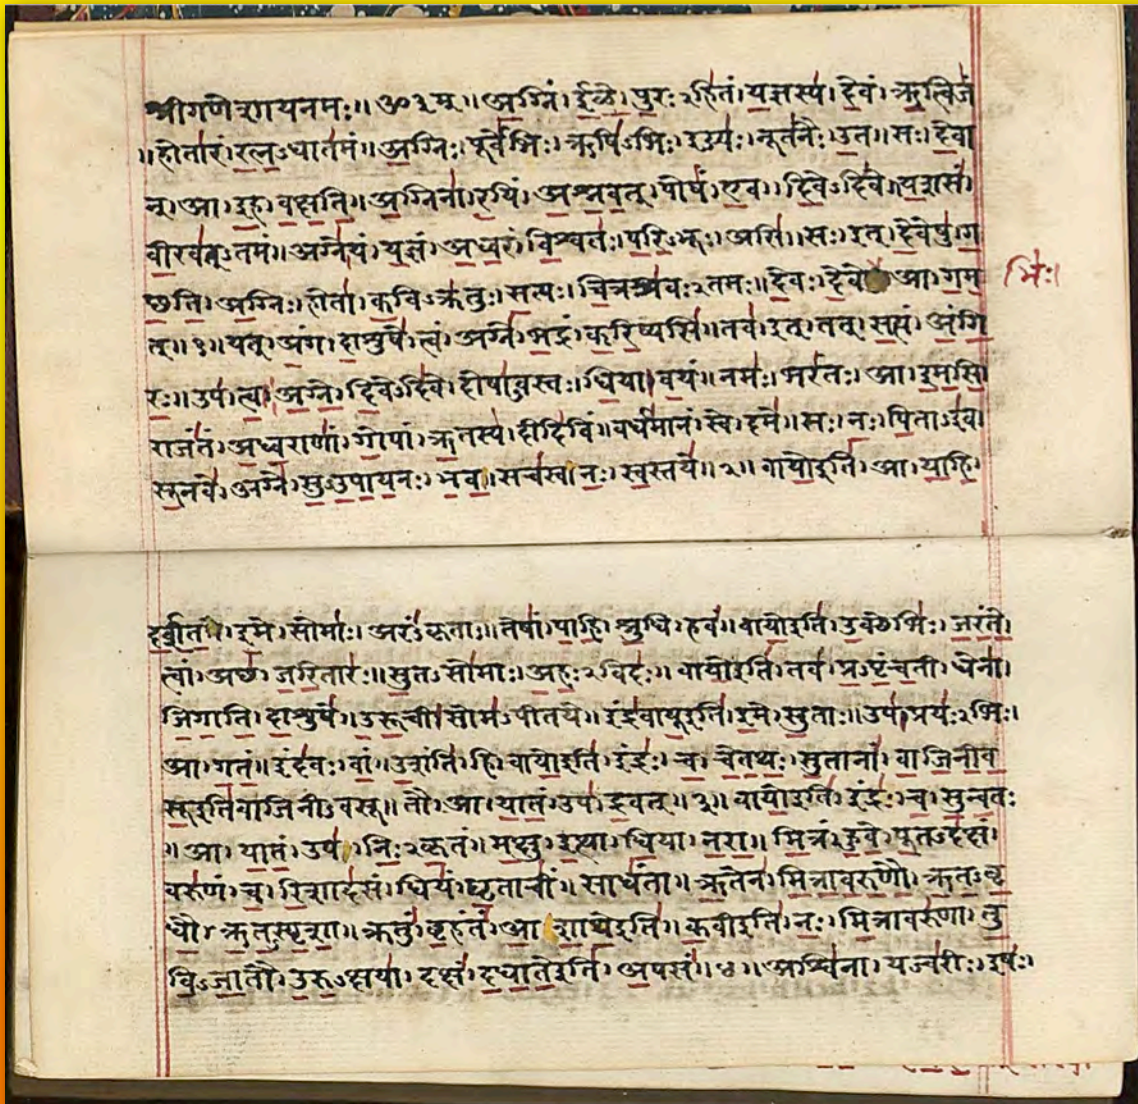 श्रीगणेशायनमः॥ॐ३म्॥अ॒ग्निं।ई॒ळे॒।पु॒रः२हि॑तं।य॒ज्ञस्य॑।दे॒वं।ऋ॒त्विजं॑
॥होता॑रं।र॒त्न॒ऽधात॑मं॥अ॒ग्निः।पूर्वे॑भिः।ऋषि॑ऽभिः।ईड्यः॑।नूत॑नैः।उ॒त॥सः।दे॒वा
न्।आ।इ॒ह।व॒क्ष॒ति॒॥अ॒ग्निना॑।र॒यिं।अ॒श्न॒व॒त्।पोषं॑।ए॒व।दि॒वेऽदि॑वे॥य॒शसं॑।
वी॒रव॑त्ऽतमं॥अग्ने॑।यं।य॒ज्ञं।अ॒ध्व॒रं।वि॒श्वतः॑।प॒रि॒ऽभूः।असि॑॥सः।इत्।दे॒वेषु॑।ग॒
च्छ॒ति॒।अ॒ग्निः।होता॑।क॒विऽक्र॑तुः।स॒त्यः।चि॒त्रश्र॑वः२तमः॥दे॒वः।दे॒वे आ।ग॒म॒
भिः॑।
त्॥१॥यत्।अं॒ग।दा॒शुषे॑।त्वं।अग्ने॑।भ॒द्रं।क॒रि॒ष्यसि॑॥तव॑।इत्।तत्।स॒त्यं।अं॒गि॒
रः॒॥उप॑।त्वा॒।अ॒ग्ने॒।दि॒वेऽदि॑वे।दोषा॑ऽवस्तः।धि॒या।व॒यं॥नमः॑।भर॑तः।आ।इ॒म॒सि॒।
राजं॑तं।अ॒ध्व॒राणां॑।गो॒पां।ऋ॒तस्य॑।दीदि॑विं॥वर्ध॑मानं।स्वे।दमे॑॥सः।नः॒।पि॒ताऽइ॑व।
सू॒नवे॑।अग्ने॑।सु॒ऽउ॒पा॒य॒नः।भ॒व॒॥सच॑स्व।नः॒।स्व॒स्तये॑॥२॥वायो॒इति॑।आ।या॒हि॒।
द॒र्श॒त॒।इ॒मे।सोमाः॑।अरं॑ऽकृताः॥तेषां॑।पा॒हि॒।श्रु॒धि।हवं॑॥वायो॒इति॑।उ॒क्थेभिः॑।ज॒रं॒ते॒।
त्वां।अच्छ॑।ज॒रि॒तारः॑॥सु॒तऽसो॑माः।अ॒हः॒२विदः॑॥वायो॒इति॑।तव॑।प्र॒ऽपृं॒च॒ती।धेना॑।
जि॒गा॒ति॒।दा॒शुषे॑॥उ॒रू॒ची।सोम॑ऽपीतये॥इंद्र॑वायू॒इति॑।इ॒मे।सु॒ताः॥उप॑।प्रयः॑२भिः।
आ।ग॒तं॒॥इंद॑वः।वां॒।उ॒शंति॑।हि॥वायो॒इति॑।इंद्रः॑।च॒।चे॒त॒थः॒।सु॒तानां॑।वा॒जि॒नी॒व॒
सू॒इति॑वाजिनीऽवसू॥तौ।आ।या॒तं॒।उप॑।द्र॒वत्॥३॥वायो॒इति॑।इंद्रः॑।च॒।सु॒न्व॒तः
॥आ।या॒तं॒।उप॑।निः॒२कृ॒तं॥म॒क्षु।इ॒त्था।धि॒या।न॒रा॒॥मि॒त्रं।हु॒वे॒।पू॒तऽद॑क्षं।
वरु॑णं।च॒।रि॒शाद॑सं।धियं॑।घृ॒ताचीं॑।साधं॑ता॥ऋ॒तेन॑।मि॒त्रा॒व॒रु॒णौ॒।ऋ॒त॒ऽवृ॒
धौ॒।ऋ॒त॒स्पृ॒शा॒॥क्रतुं॑।बृ॒हंतं॑।आ॒शा॒थे॒इति॑॥क॒वीइति॑।नः॒।मि॒त्रावरु॑णा।तु॒
वि॒ऽजा॒तौ।उ॒रु॒ऽक्षया॑।दक्षं॑।द॒धा॒ते॒इति॑।अ॒पसं॑॥४॥अश्वि॑ना।यज्व॑रीः।इषः॑।